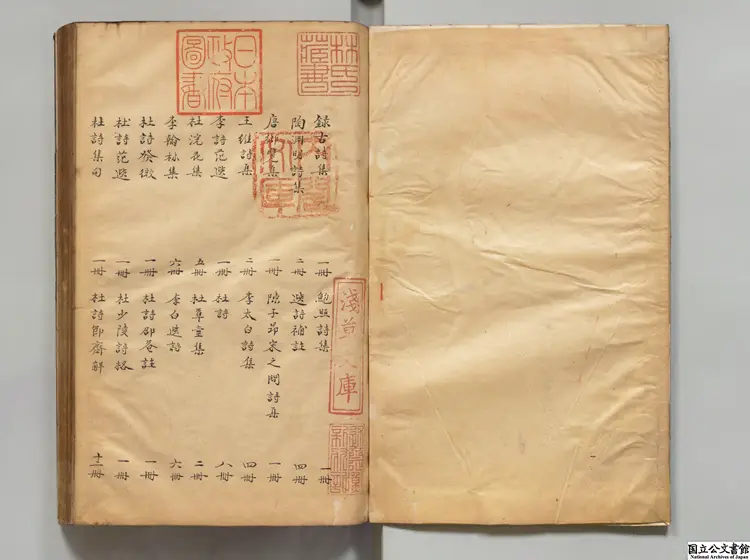 録古詩集 一冊 鮑照詩集 一冊
陶淵明詩集 二冊 選詩補註 四冊
唐 集 一冊 陳子昂宋之問詩集 一冊
王維詩集 二冊 李太白詩集 四冊
李詩范選 一冊 杜詩 八冊
杜浣花集 五冊 杜草堂集 二冊
李翰林集 六冊 李白選詩 六冊
杜詩發微 一冊 杜詩邵菴註 一冊
杜詩范選 一冊 杜少陵詩格 一冊
杜詩集句 一冊 杜詩 齋解 冊
林氏藏書
日本政府圖書
淺草文庫
国立公文書館
National Archives of Japan